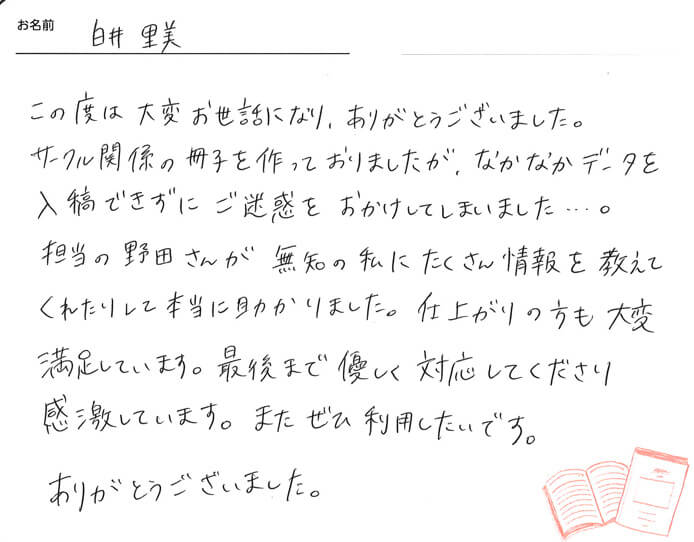 お名前
白井 里美
この度は大変お世話になり、ありがとうございました。
サークル関係の冊子を作っておりましたが、なかなかデータを
入稿できずにご迷惑をおかけしてしまいました…。
担当の野田さんが無知の私にたくさん情報を教えて
くれたりして本当に助かりました。仕上がりの方も大変
満足しています。最後まで優しく対応してくださり
感激しています。またぜひ利用したいです。
ありがとうございました。